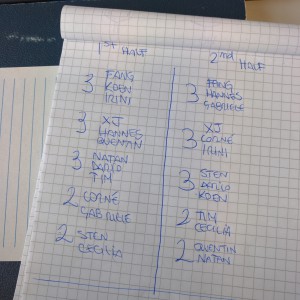 1st HALF
3 FANG
KOEN
IRINI
3 XJ
HANNES
QUENTIN
3 NATAN
DARIO
TIM
2 CORNÉ
GABRIELE
2 STEN
CECILIA
2nd HALF
3 FANG
HANNES
GABRIELE
3 XJ
CORNÉ
IRINI
3 STEN
DARIO
KOEN
2 TIM
CECILIA
2 QUENTIN
NATAN